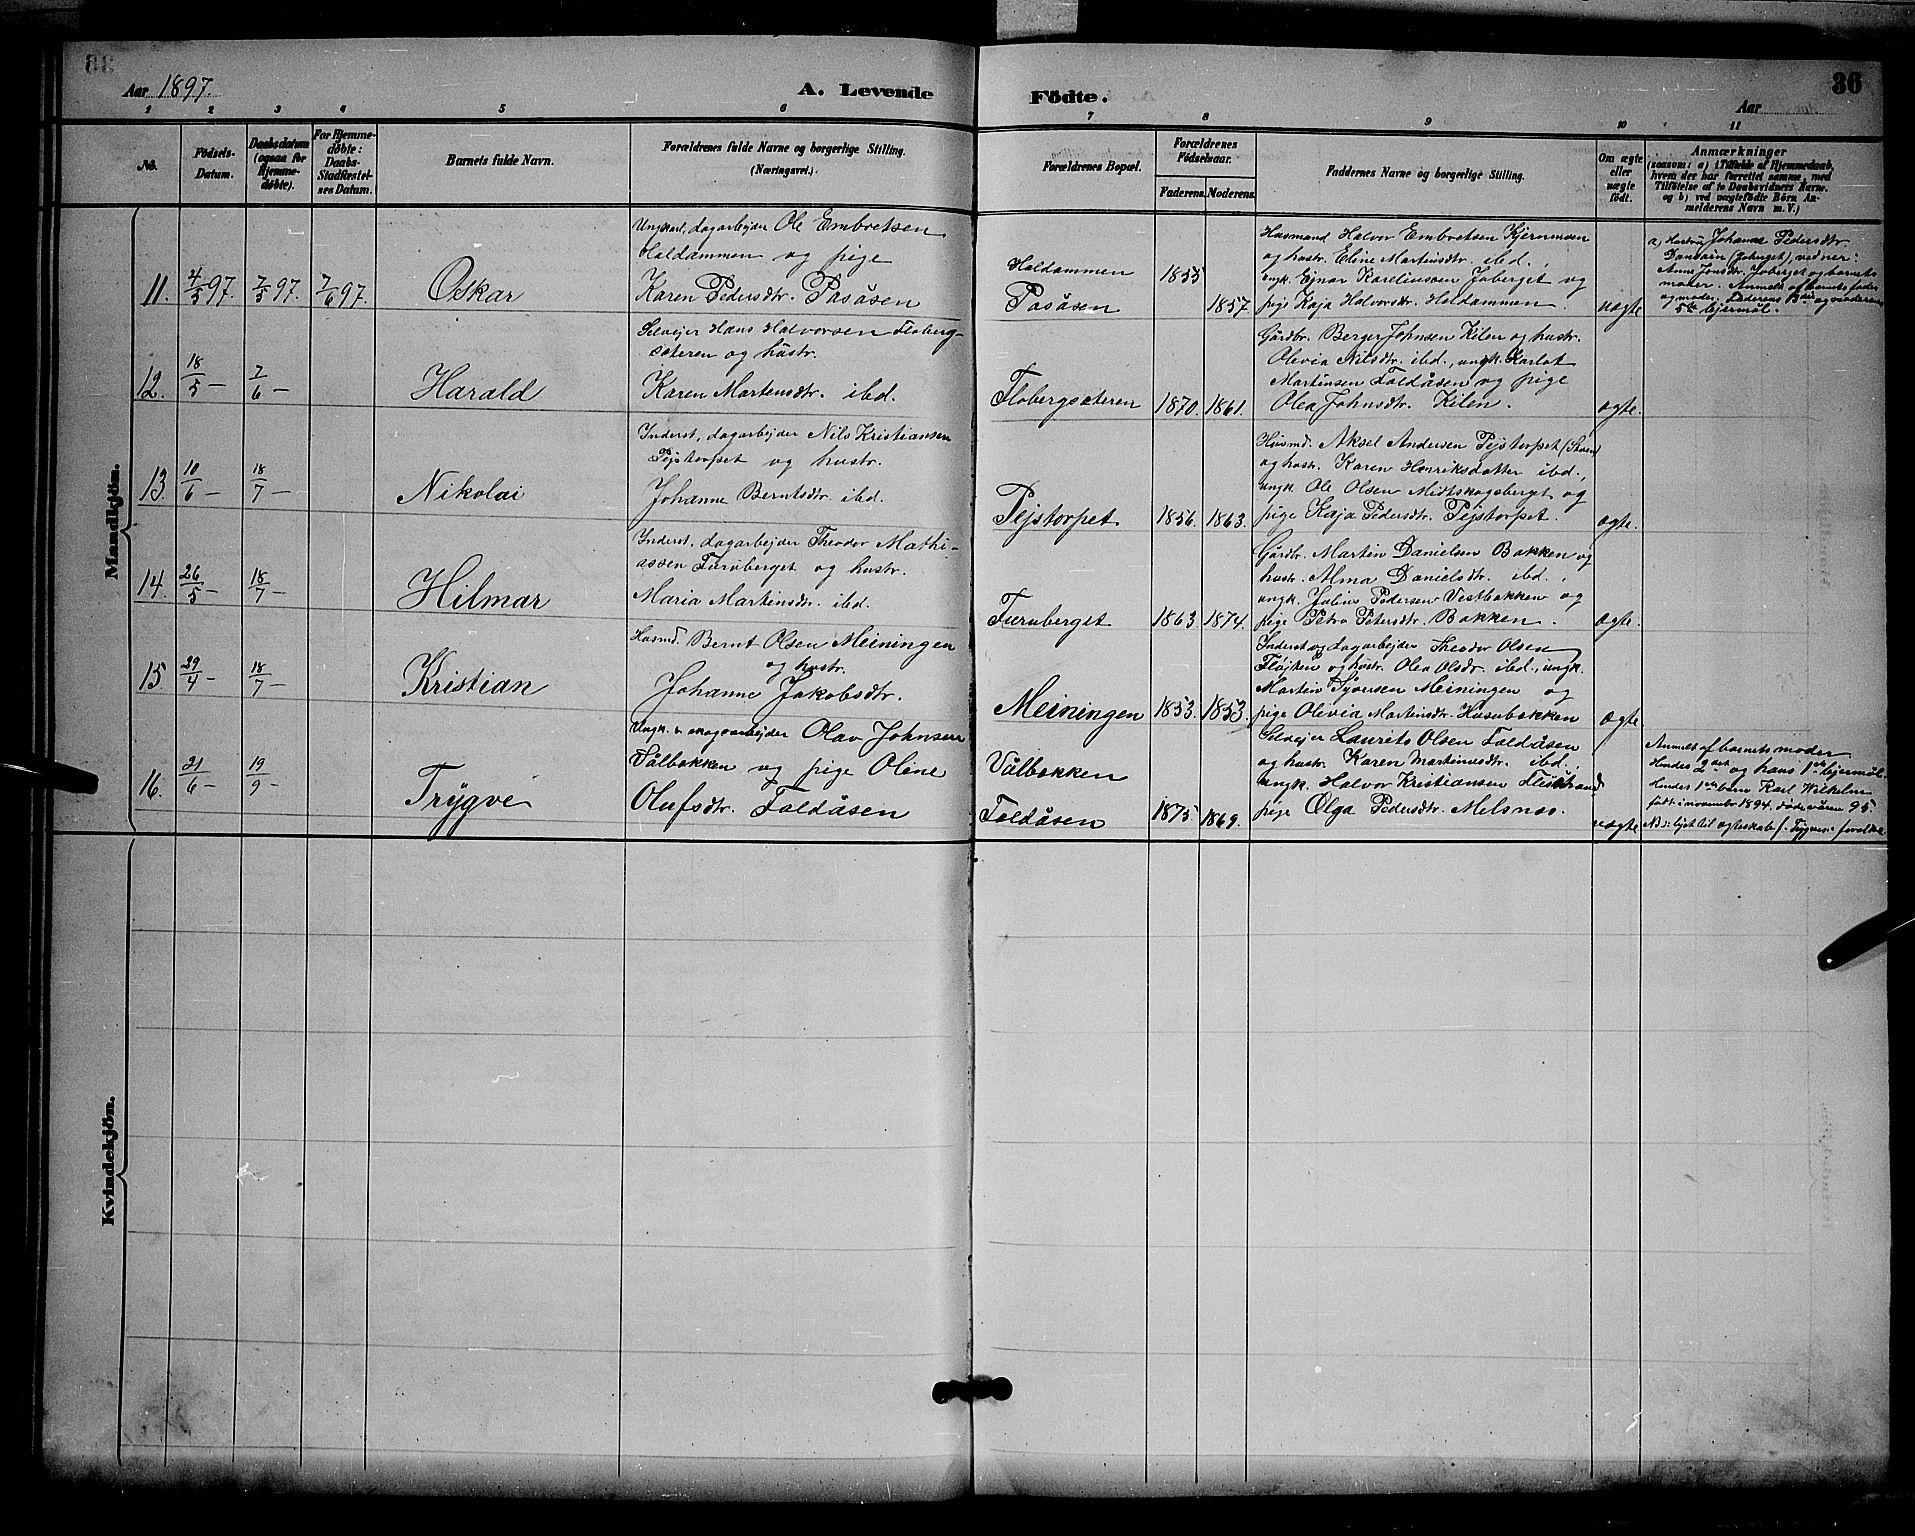 Aar 1897.
A. Levende Födte.
Aar
36
1 2 3 4 5 6 7 8 9 10 11
No.
Födsels-Datum.
Daabsdatum (ogsaa for Hjemmedøbte).
For Hjemmedøbte: Daabs-Stadfæstelses Datum.
Barnets fulde Navn.
Forældrenes fulde Navne og borgerlige Stilling. (Næringsvei.)
Forældrenes Bopæl.
Forældrenes Födselsaar.
Faderens. Moderens.
Faddernes Navne og borgerlige Stilling.
Om ægte eller uægte födt.
Anmærkninger
(saasom: a) i Tilfælde af Hjemmedaab,
hvem der har forrettet samme, med
Tilföielse af to Daabsvidners Navne.
og b) ved uægtefödte Börn An-
melderens Navn m. V.)
Mandkjön.
11. 4/5 97. 7/5 97. 7/6 97.
Oskar
Ungkarl, dagarbejder Ole Embretsen
Holdammen og pige
Karen Pedersdtr. Pasåsen
Holdammen
Pasåsen
1855
1857.
Husmand Halvor Embretsen Kjernmoen
og hustr. Eline Martinsdtr. ibd.,
ungk. Ejnar Kareliussen Joberget og
pige Kaja Halvorsdtr. Holdammen.
uægte
a) Hustru Johanne Pedersdtr.
vidner:
Anne Jonsdtr. Joberget og barnets
moder. Anmeldt af barnets fader
og moder. Faderens og moderens
5te lejermål.
12. 18/5 – 7/6 –
Harald
Selvejer Hans Halvorsen Floberg-
sæteren og hustr.
Karen Martensdtr. ibd.
Flobergsæteren
1870. 1861.
Gårdbr. Berger Johnsen Kilen og hustr.
Olevia Nilsdtr. ibd., ungk. Karlot
Martinsen Foldåsen og pige
Olea Johnsdtr. Kilen.
ægte.
13. 10/6 – 18/7 –
Nikolai
Inderst, dagarbejder Nils Kristiansen
Pejstorpet og hustr.
Johanne Berntsdtr. ibd.
Pejstorpet
1856. 1863.
Husmd. Aksel Andersen Pejstorpet
og hustr. Karen Henriksdatter ibd.,
ungk. Ole Olsen Midtskogsberget og
pige Kaja Pedersdtr. Pejstorpet.
ægte.
14. 26/5 – 18/7 –
Hilmar
Inderst, dagarbejder Theodor Mathi-
assen Furuberget og hustr.
Maria Martinsdtr. ibd.
Furuberget
1863. 1874.
Gårdbr. Martin Danielsen Bakken og
hustr. Alma Danielsdtr. ibd.,
ungk. Julius Pedersen Vestbakken og
pige Petra Petersdtr. Bakken.
ægte.
15. 29/4 – 18/7 –
Kristian
Husmd. Bernt Olsen Meiningen
og hustr.
Johanne Jakobsdtr.
Meiningen
1853. 1853.
Inderst og dagarbejder Theodor Olsen
Fløjten og hustr. Olea Olsdr. ibd., ungk.
Martin Syversen Meiningen og
pige Olivia Martinsdtr. Husubakken
ægte
16. 21/6 – 19/9 –
Trÿgve
Ungk. & skogsarbejder Olav Johnsen
Vålbakken og pige Oline
Olufsdtr. Foldåsen
Vålbakken
Foldåsen
1875. 1869.
Selvejer Laurits Olsen Foldåsen
og hustr. Karen Martinusdtr. ibd.,
ungk. Halvor Kristiansen Flisstrand
pige Olga Pedersdtr. Melsnes.
uægte
Anmeldt af barnets moder
Hendes 2det og hans 1ste lejermål.
Hendes 1ste barn Karl Wilhelm
født i november 1894, døde våren 95
lyst til ægteskab f. Trygves forældre
Kvindekjön.